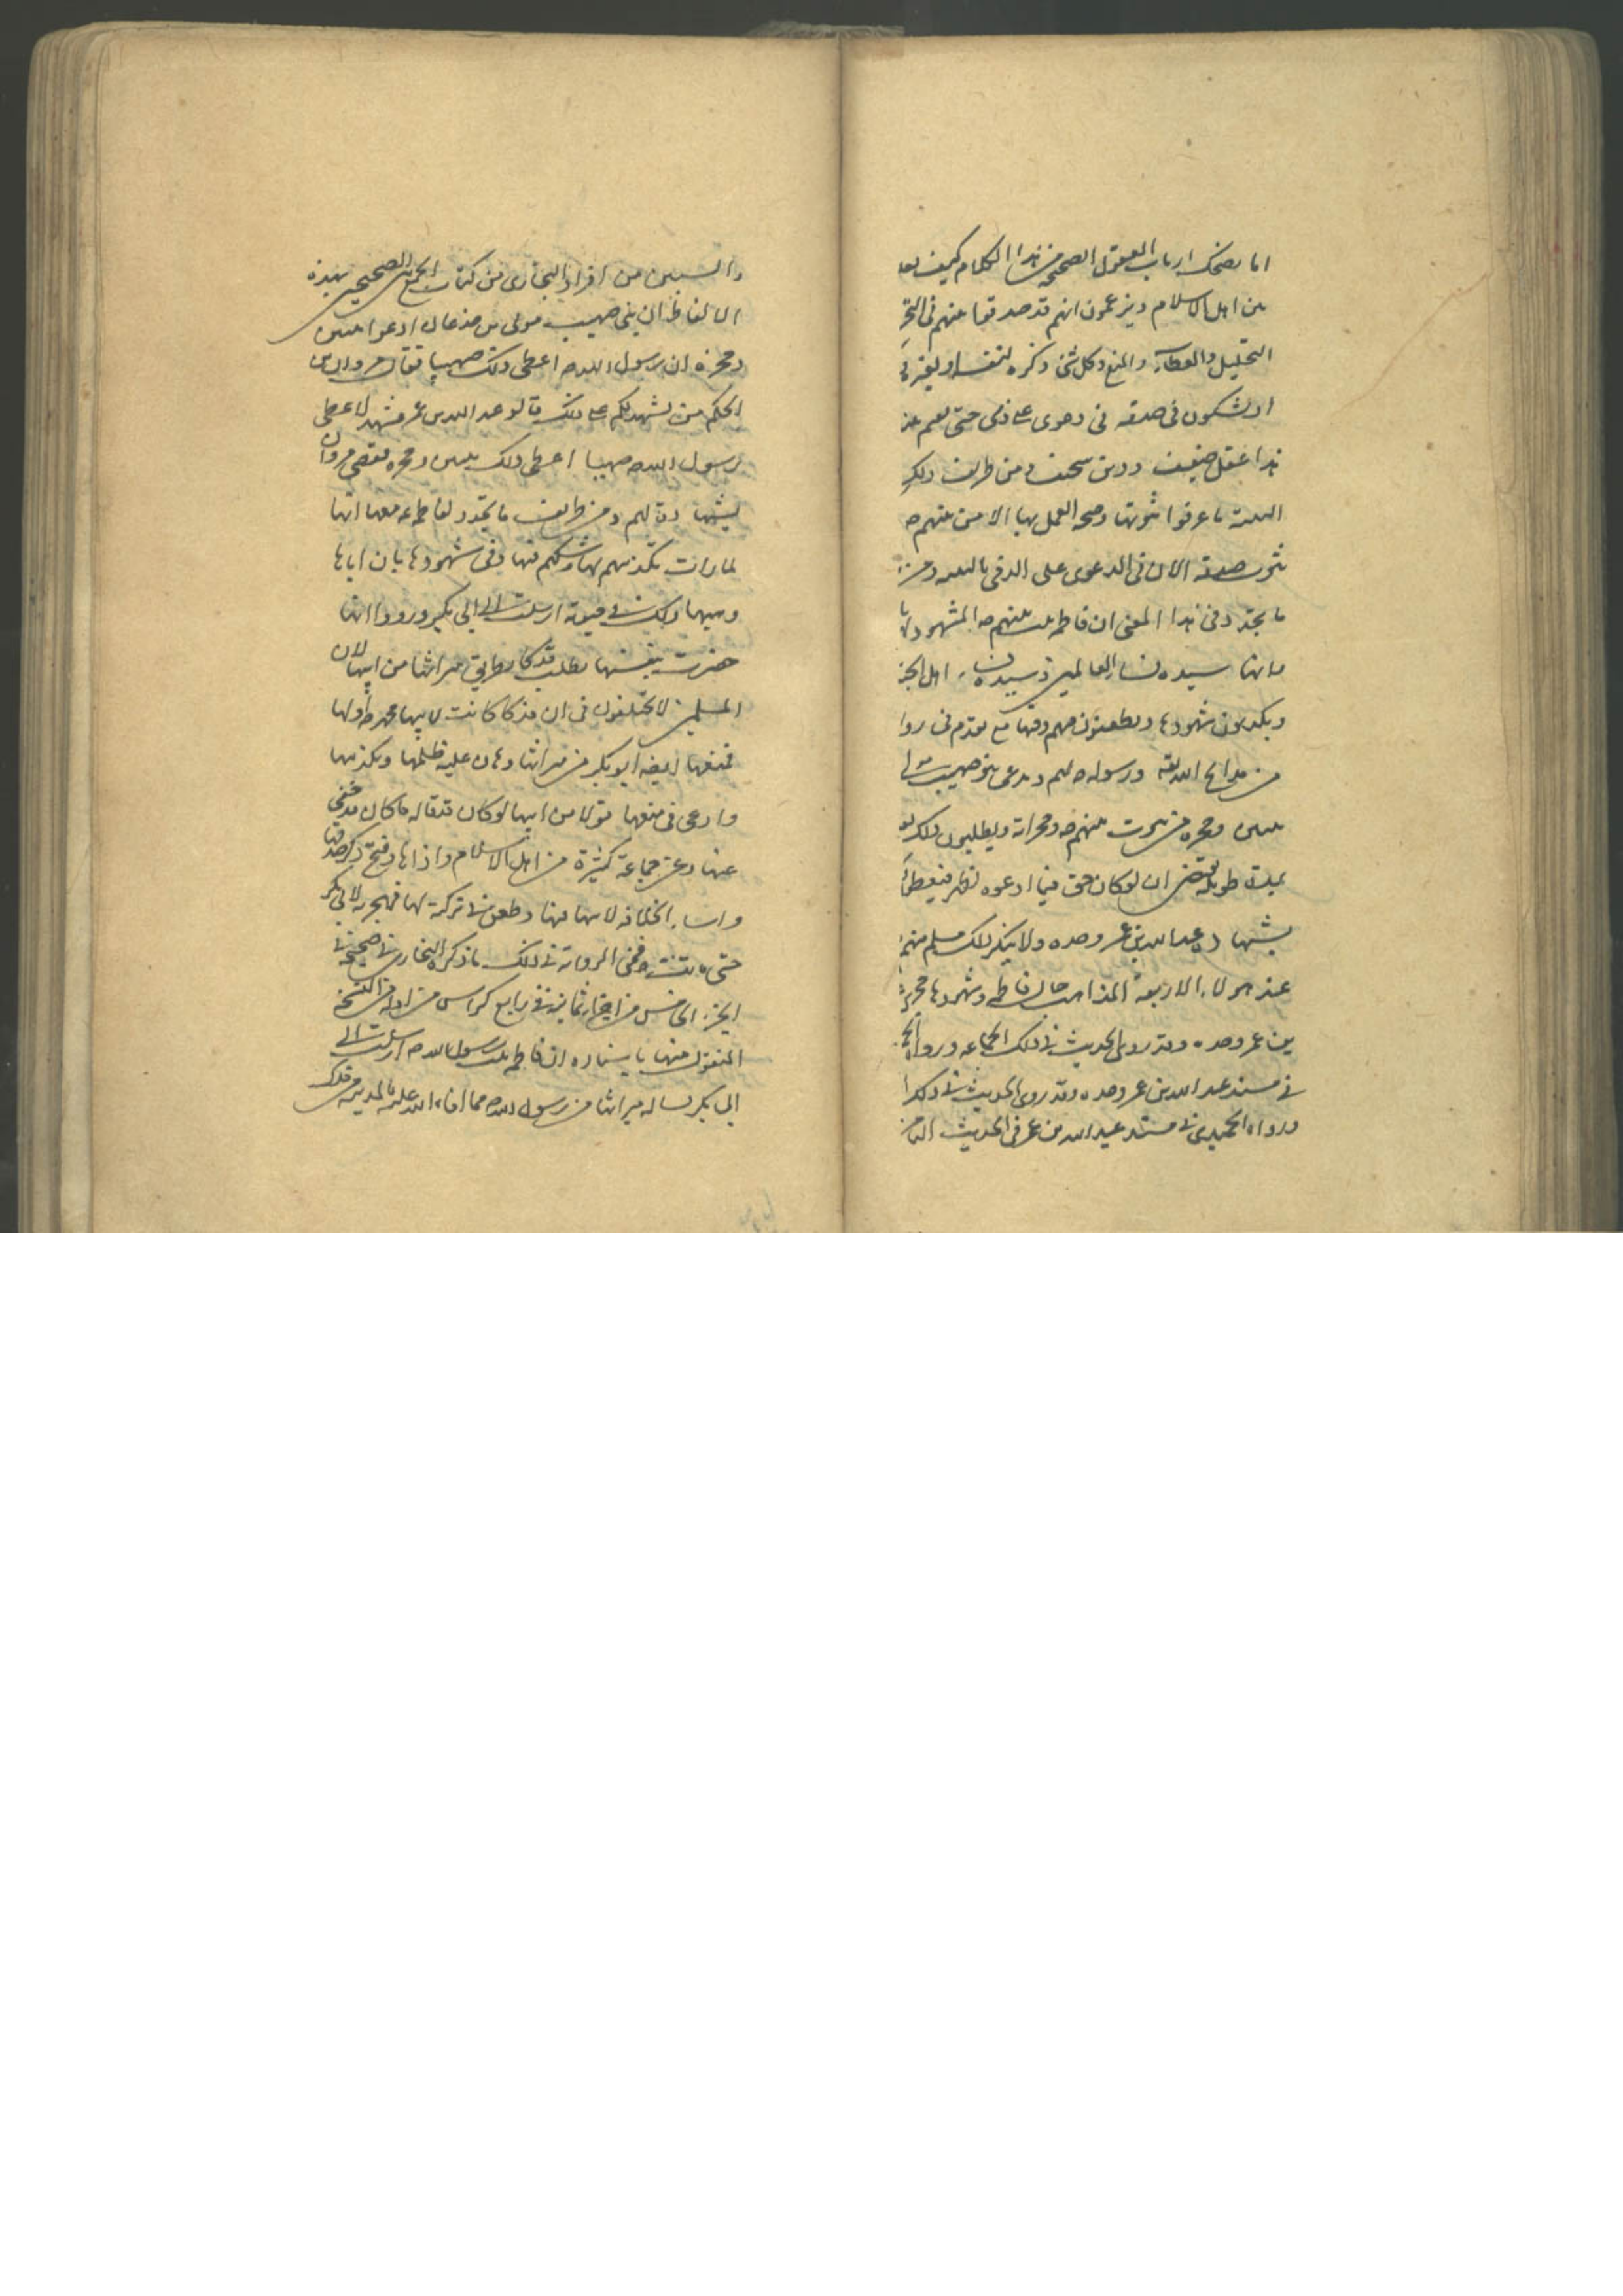 اما يضحك ارباب العقول الصحيحة من هذا الكلام كيف يعد
من اهل الاسلام ويزعمون انهم قد صدقوا عنهم في التحر
التحليل والعطاء والمنع وكل شئ ذكره لنفسه او لغيره
او يشكون في صدقه في دعوى على ذمى حتى
هذا عقل ضعيف ودين سخيف ومن طرائف ذلك
البينة ما عرفوا ثبوتها وصحة العمل بها الا من نبيهم ص
ثبوت صدقه الان في الدعوى على الذمى بالبينة ومن
ما تجدد في هذا المعنى ان فاطمة بنت نبيهم ص المشهود لها
بانها سيدة نساء العالمين وسيدة نساء اهل الجنة
ويكذبون شهودها ويطعنون فيهم وفيها مع ما تقدم في روا
من مدائح الله تعالى ورسوله ص لهم ويدعى بنو صهيب مولى
بيتين وحجرة من بيوت نبيهم ص وحجراته ويطلبون ذلك بعد
مدة طويلة تقتضي ان لو كان حق فيما ادعوه لظهر فيعطون
بشهادة عبد الله بن عمر وحده ولا ينكر ذلك مسلم منهم
عند هؤلاء الاربعة المذاهب حال فاطمة وشهودها مجرى
بن عمر وحده وقد روى الحديث في ذلك الجماعة ورواه الحـ
في مسند عبد الله بن عمر وحده وقد روى الحديث في ذلك ا
ورواه الحميدى في مسند عبد الله بن عمر في الحديث الثامن
والستين من افراد البخارى من كتاب الجمع بين الصحيحين بهذه
الالفاظ ان بنى صهيب مولى بن جذعان ادعوا بيتين
وحجرة ان رسول الله ص اعطى ذلك صهيبا فقال مروان بن
الحكم من يشهد لكم على ذلك قالوا عبد الله بن عمر فشهد لاعطى
رسول الله ص صهيبا اعطى ذلك بيتين وحجرة فقضى مروان
بشهادته لهم ومن طرائف ما تجدد لفاطمة ع معهم انها
لما رات تكذيبهم لها وشكهم فيها وفي شهودها بان اباها
وهبها ذلك في حيوته ارسلت الى ابى بكر ورووا انها
حضرت بنفسها تطلب فدكا بطريق ميراثها من ابيها لان
المسلمين لا يختلفون في ان فدكا كانت لابيها محمد ص
فمنعها ايضا ابو بكر من ميراثها وهان عليه ظلمها وتكذيبها
وادعى في منعها قولا من ابيها لو كان قد قاله ما كان قد خفى
عنها وعن جماعة كثيرة من اهل الاسلام واذاها وقبح ذكر صدقها
واساء الخلافة لابيها فيها وطعن في تركته لها فهجرته لابى بكر
حتى ماتت فمن الرواية في ذلك ما ذكره البخارى في صحيحه في
الجزء الخامس من اجزاء ثمانية في رابع كراس من اوله من النسخة
المنقول منها باسناده ان فاطمة بنت رسول الله ص ارسلت الى
ابى بكر تساله ميراثها من رسول الله ص مما افاء الله عليه بالمدينة من فدك